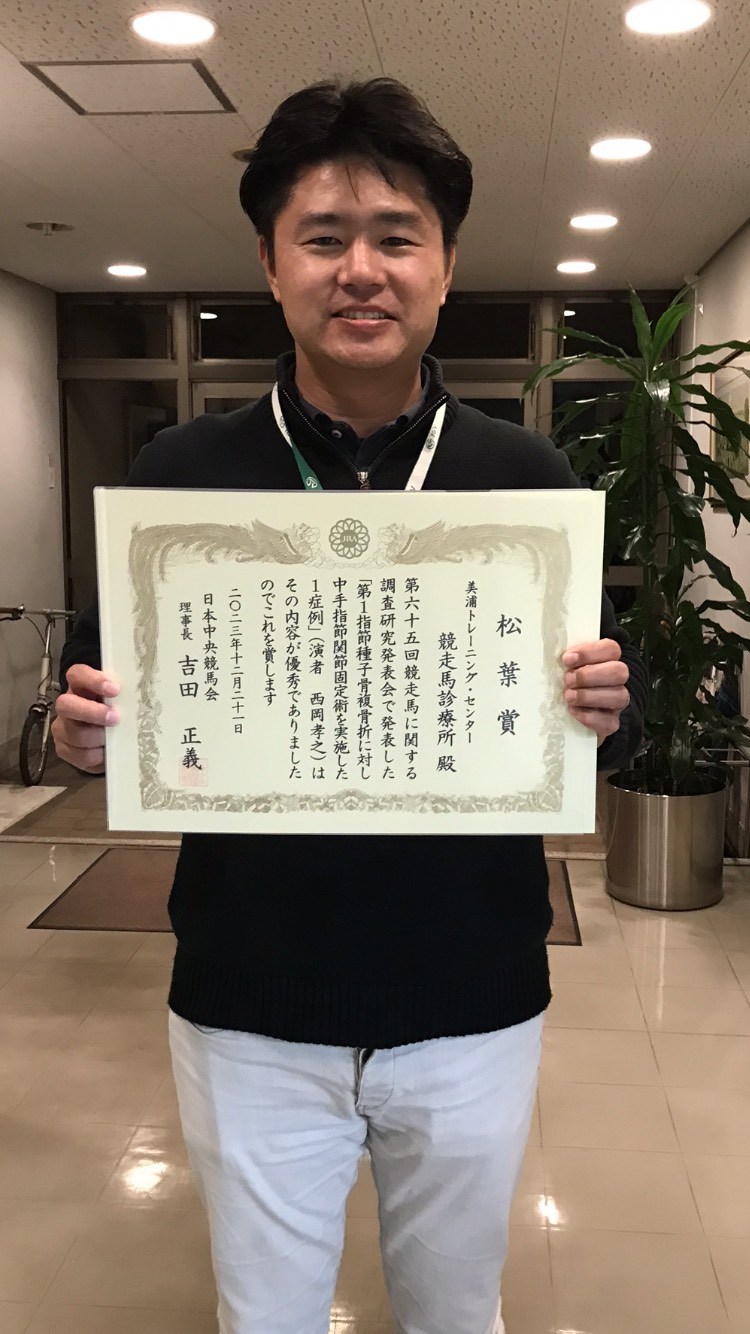 JRA
松葉賞
美浦トレーニング・センター
競走馬診療所 殿
第六十五回競走馬に関する
調査研究発表会で発表した
「第1指節種子骨複骨折に対し
中手指節関節固定術を実施した
1症例」（演者 西岡孝之）は
その内容が優秀でありました
のでこれを賞します
二〇二三年十二月二十一日
日本中央競馬会
理事長 吉田 正義